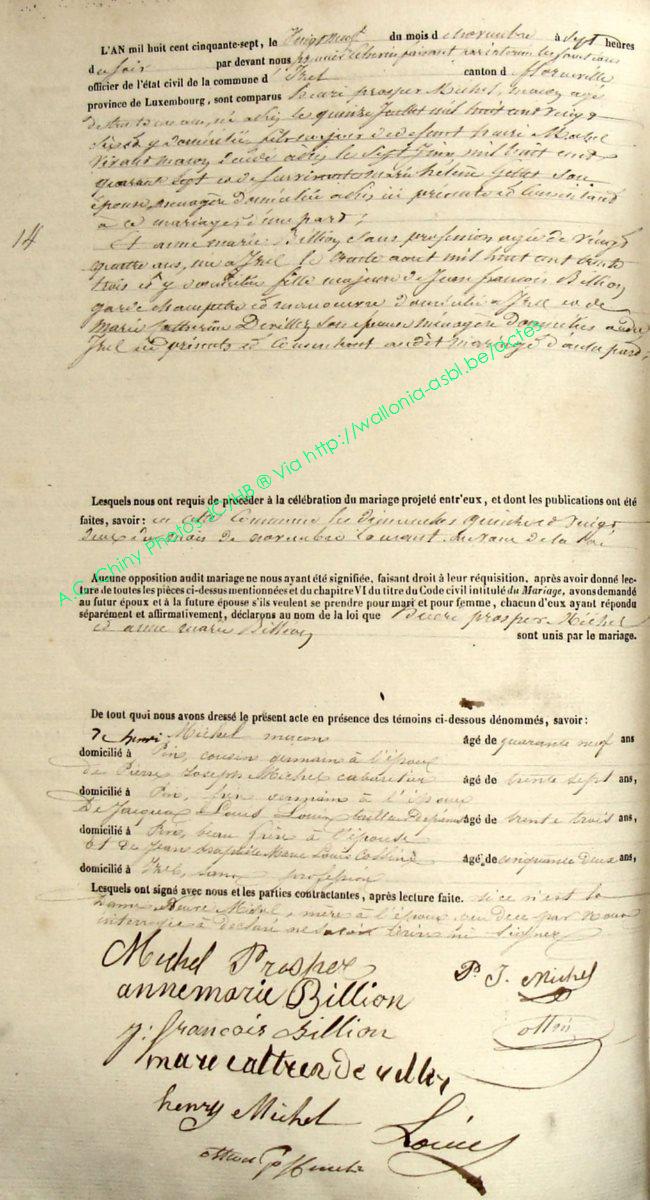 L'AN mil huit cent cinquante-sept, le vingt neuf du mois de novembre à sept heures
du soir par devant nous premier Echevin faisant par interim les fonctions
officier de l'état civil de la commune d'Izel canton de Florenville
province de Luxembourg, sont comparus Henri prosper Michel, maçon, agé
de trente un ans, né à Pin le quinze juillet mil huit cent vingt
six et y domicilié, fils majeur de defunt Henri Michel
vivant maçon décédé à Pin le sept Juin mil huit cent
quarante sept et de survivante marie hélène son
épouse, menagère domiciliée à Pin ici présente et consentant
à ce mariage d'une part;
14
Et anne marie Billion, sans profession agée de vingt
quatre ans, née à Izel le trente aout mil huit cent trente
trois et y domiciliée fille majeure de Jean françois Billion
garde champetre et manoeuvre domicilié à Izel et de
Marie Catherine Devillez son épouse ménagère domiciliés audit
Izel ici présents et consentant audit mariage d'autre part;
Lesquels nous ont requis de procéder à la célébration du mariage projeté entr'eux, et dont les publications ont été
faites, savoir: en cette Commune les dimanches quinze et vingt
deux du mois de novembre courant
Aucune opposition audit mariage ne nous ayant été signifiée, faisant droit à leur réquisition, après avoir donné lec-
ture de toutes les pièces ci-dessus mentionnées et du chapitre VI du titre du Code civil intitulé du Mariage, avons demandé
au futur époux et à la future épouse s'ils veulent se prendre pour mari et pour femme, chacun d'eux ayant répondu
séparément et affirmativement, déclarons au nom de la loi que Henri prosper Michel
et anne marie Billion sont unis par le mariage.
De tout quoi nous avons dressé le présent acte en présence des témoins ci-dessous dénommés, savoir:
De henri Michel maçon âgé de quarante neuf ans
domicilié à Pin, cousin germain à l'époux
de Pierre Joseph Michel cabaretier âgé de trente sept ans,
domicilié à Pin, frère germain à l'époux
De Jacques Louis Louis, âgé de trente trois ans,
domicilié à Pin, beau frère à l'épouse
Et de Jean baptiste Marie Louis âgé de cinquante deux ans,
domicilié à Izel, sans profession
Lesquels ont signé avec nous et les parties contractantes, après lecture faite. si ce n'est la
Dame Michel, mère à l'époux par nous
interrogée a déclaré ne savoir écrire ni signer
Michel Prosper
P. J. Michel
annemarie Billion
j. francois Billion
marie catrez de villez
henry Michel
Louis
A.C. Chiny Photos JC/HB ® Via http://wallonia-asbl.be/actes